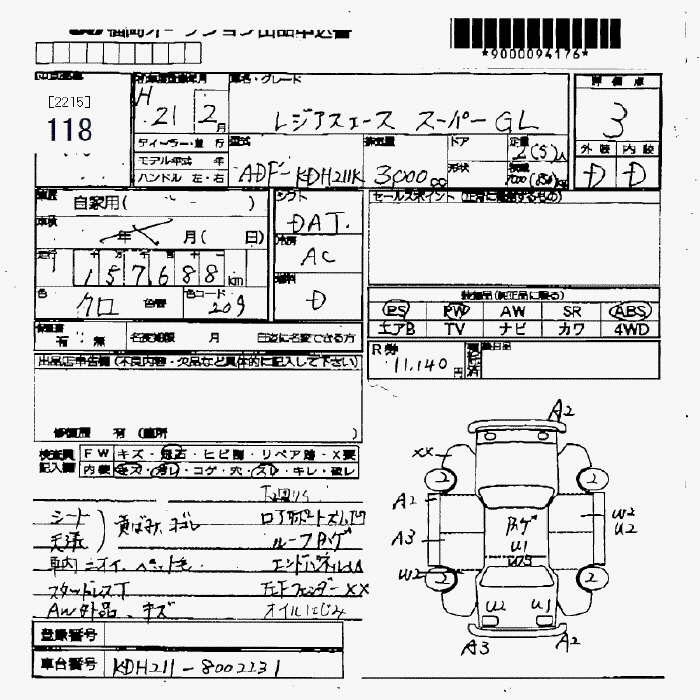 福岡オークション出品申込書
*9000094176*
[2215]
118
初年度登録年月
H 21 2月
車名・グレード
レジアスエース スーパーGL
評価点
3
外装 内装
D D
ディーラー・並行
モデル年式 年
ハンドル 左・右
型式
ADF-KDH211K
排気量
3,000cc
ドア
形状
定員
2(5)人
積載
車歴
自家用( )
車検
年 月( 日)
走行
157688km
色
クロ
色替
色コード
209
シフト
DAT.
冷房
AC
燃料
D
セールスポイント(正常に機能するもの)
装備品(純正品に限る)
PS PW AW SR ABS
エアB TV ナビ カワ 4WD
有・無 名変期限 月 日迄に名変できる方
R券
11,140円
出品店申告欄(不良内容・欠品など具体的に記入して下さい)
修復歴 有(箇所 )
検査員記入欄
FW キズ・飛石・ヒビ割・リペア跡・X要
内装 キズ・汚レ・コゲ・穴・スレ・キレ・破レ
シート 黄ばみ、ヨゴレ
天張
ルーフ
車内ニオイ、ペット毛
エンドパネル
スタッドレスT
フェンダーXX
AW外品、キズ
オイルにじみ
登録番号
車台番号 KDH211-8002231
A2
XX
2 2
A2
W2
U2
A3
U1
W3
W2
2 2
U2 U1
A3 A2